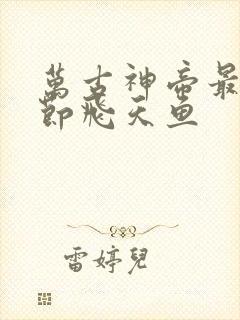 萬古神帝最
節飛天魚
雷婷兒